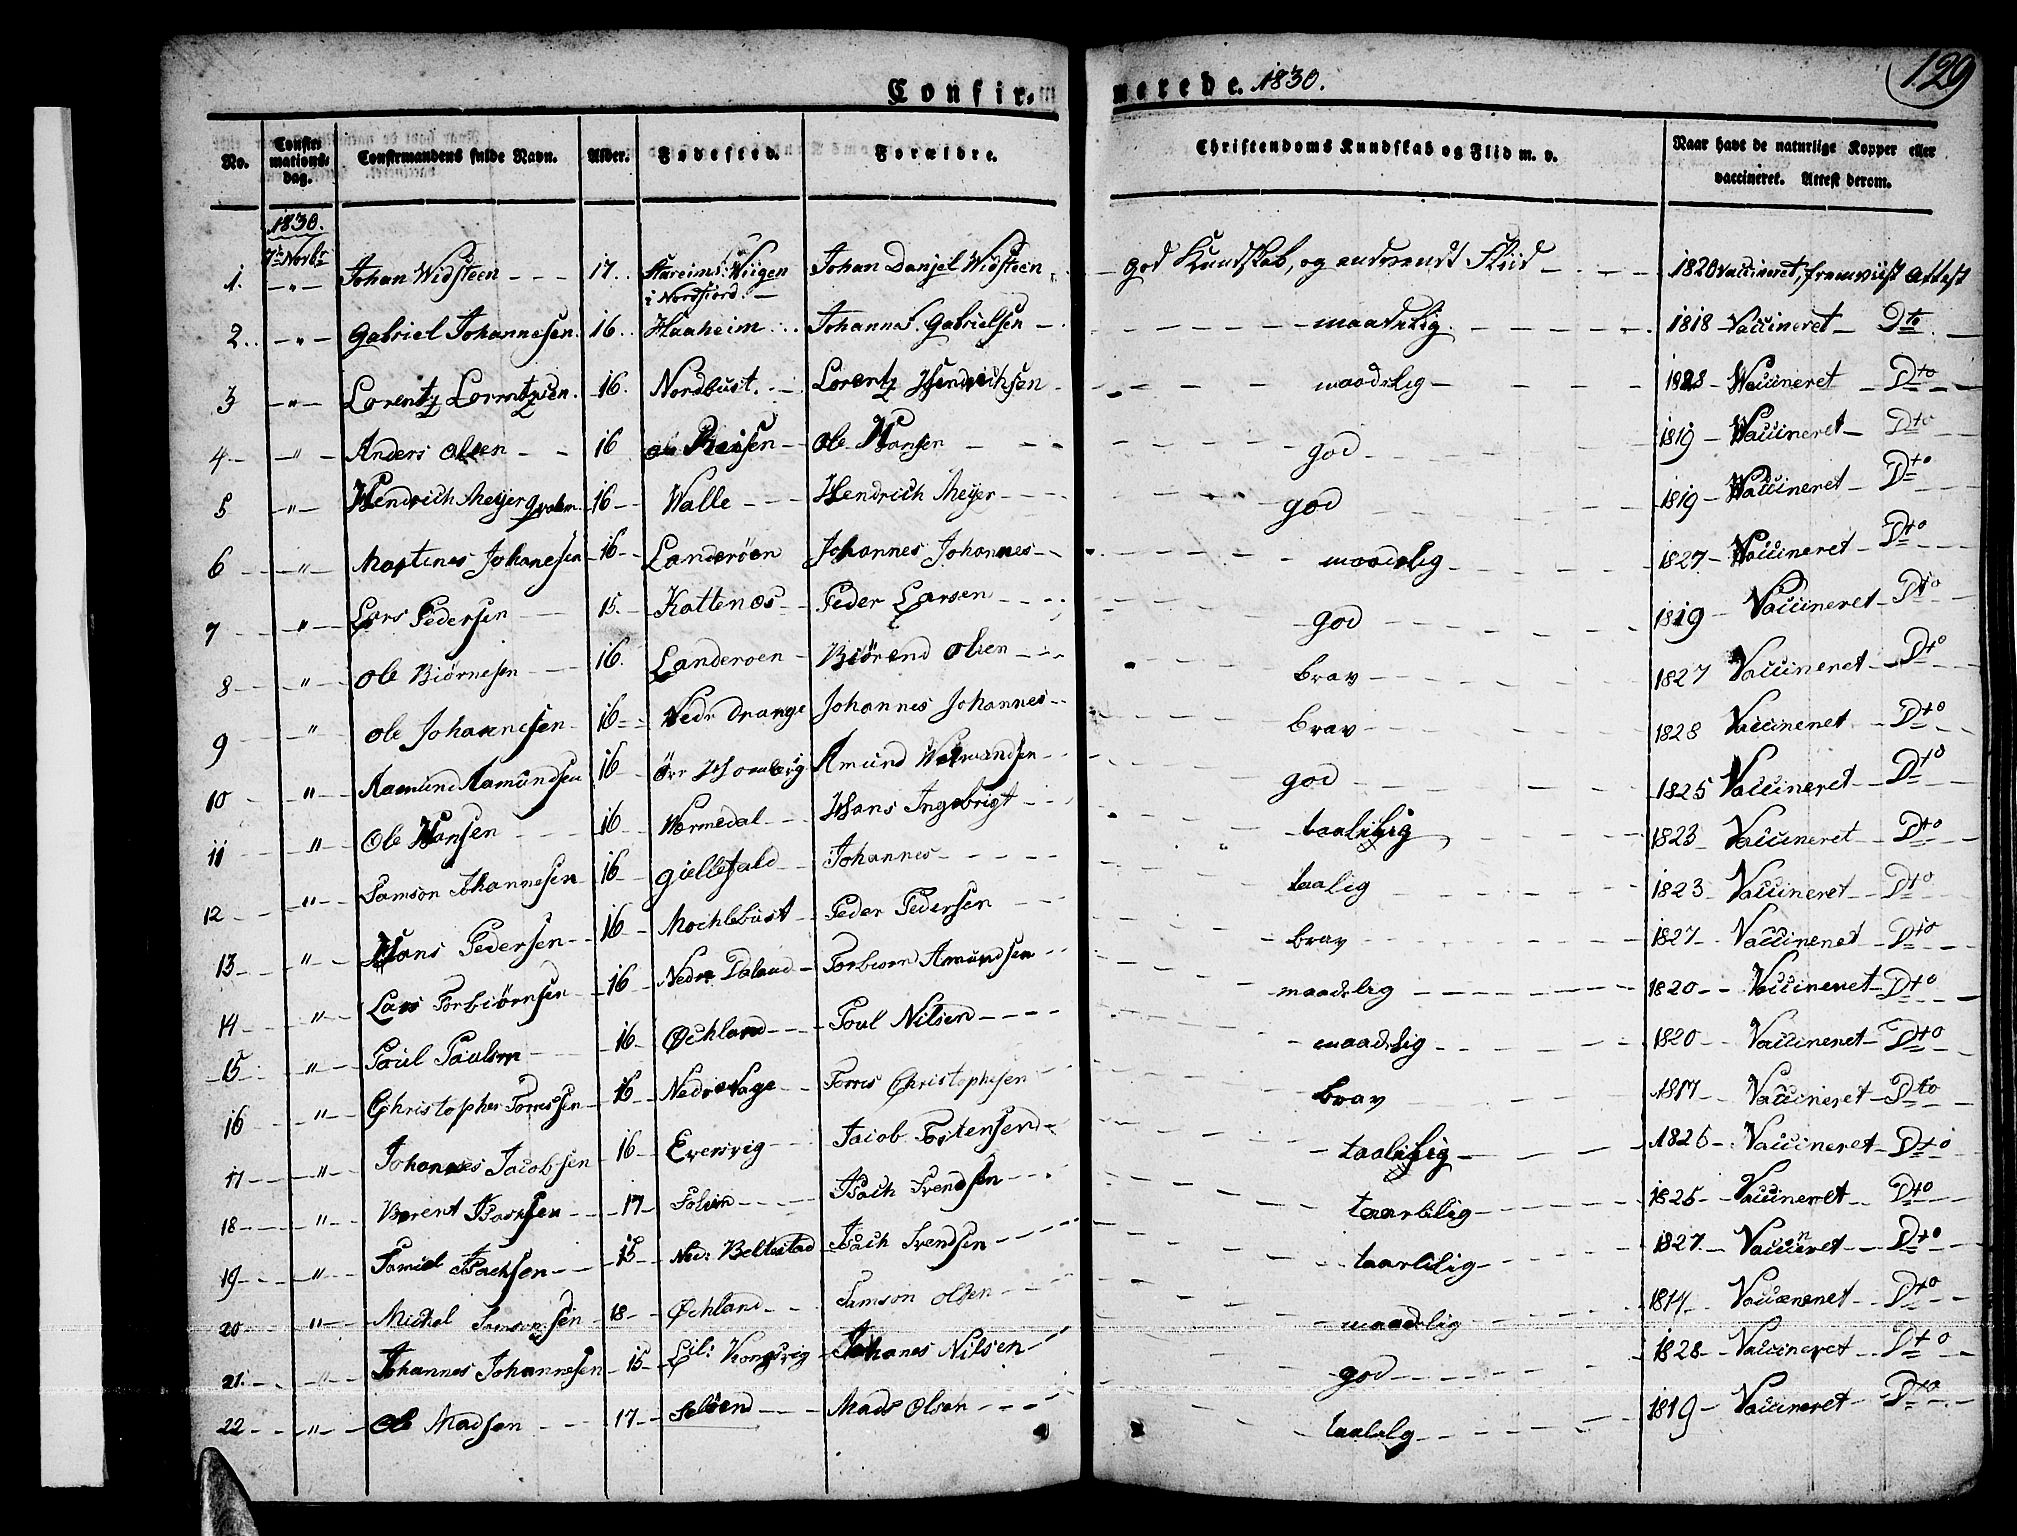 Confirmerede. 1830.
129
No. Confirmations-dag. Confirmandens fulde Navn. Alder. Fødested. Forældre. Christendoms Kundskab og Flid m. v. Naar havt de naturlige Kopper eller vaccineret. Attest derom.
1830.
7de Novbr
1. - " - Johan Widsteen - - - 17. Wiigen i Nordfiord. - Johan Danjel Widsteen - god Kundskab, og Fliid - - - 1820 vaccineret, fremviist Attest
2. - " - Gabriel Johannesen. 16. Haaheim. Johannes Gabrielsen - maadelig - 1818 - Vaccineret - Dto
3 - " - Lorentz Lorentzen. 16. Nordbust. - Lorentz Hendrichsen - maadelig - Vaccineret - Dto
4 - " - Anders Olsen - - 16 Ole Hansen - - god - 1819 - Vaccineret - Dto
5 - " - Hendrich Meyer 16 - Walle - - Hendrich Meyer - - god - 1819 - Vaccineret - Dto
6 - " - Johanesen 16 - Landerøen Johannes Johannes - maadelig - 1827 - Vaccineret - Dto
7 - " - Lars Pedersen 15. - Kattenes - Peder Larsen - - god - 1819 - Vaccineret - Dto
8 - " - Ole Biörnesen - 16. Landeroen - Biörend Olsen - - brav - 1827 Vaccineret - Dto
9 " Ole Johannesen - 16 - Nedr Drange Johannes Johannes - brav - 1828 Vaccineret - Dto
10 - " - Aamund Aamundsen 16 - Amund - god - 1825 Vaccineret - Dto
11 - " - Ole Hansen - 16 - Wormedal - Hans Ingebrigt - taalilig - 1823 Vaccineret - Dto
12 - " - Samson Johannesen 16 - Johannes - - - taalig - 1823 - Vaccineret - Dto
13 - " - Hans Pedersen - 16 - Mochlebust - Peder Pedersen - brav - 1827 - Vaccineret - Dto
14 - " - Lars Torbiörnsen - 16 - Nedre Daland - Torbiorn Amundsen - maadelig - 1820 - Vaccineret - Dto
15 - " - Poul Paulsen - 16 - Øchland - - Poul Nilsen - - - maadelig - 1820 - Vaccineret - Dto
16 - " - Christopher Torressen - 16 - Nedrevage - Torres Christophesen - brav - 1817 - Vaccineret - Dto
17 - " - Johannes Jacobsen 16 - Evensvig - Jacob - taalilig - Vaccineret - Dto
18 - " - Berent Isachsen - 17 - - Isach Svendsen - - taarlilig - 1825 - Vaccineret - Dto
19 - " - Samuel Isachsen - 15 - Ned: Beltestad Isach Svendsen - - taarlilig - 1827 - Vaccineret - Dto
20 - " - Michel Samsonsen - 18 - Øchland - - Samson Olsen - - maadelig - Vaccineret - Dto
21. - " - Johannes Johannesen - 15 - Lil: Kongsvig - Johanes Nilsen - god - 1828 - Vaccineret - Dto
22 - " - Ole Madsen - - 17 - - Mads Olsen - - - taalilg - 1819 - Vaccineret - Dto